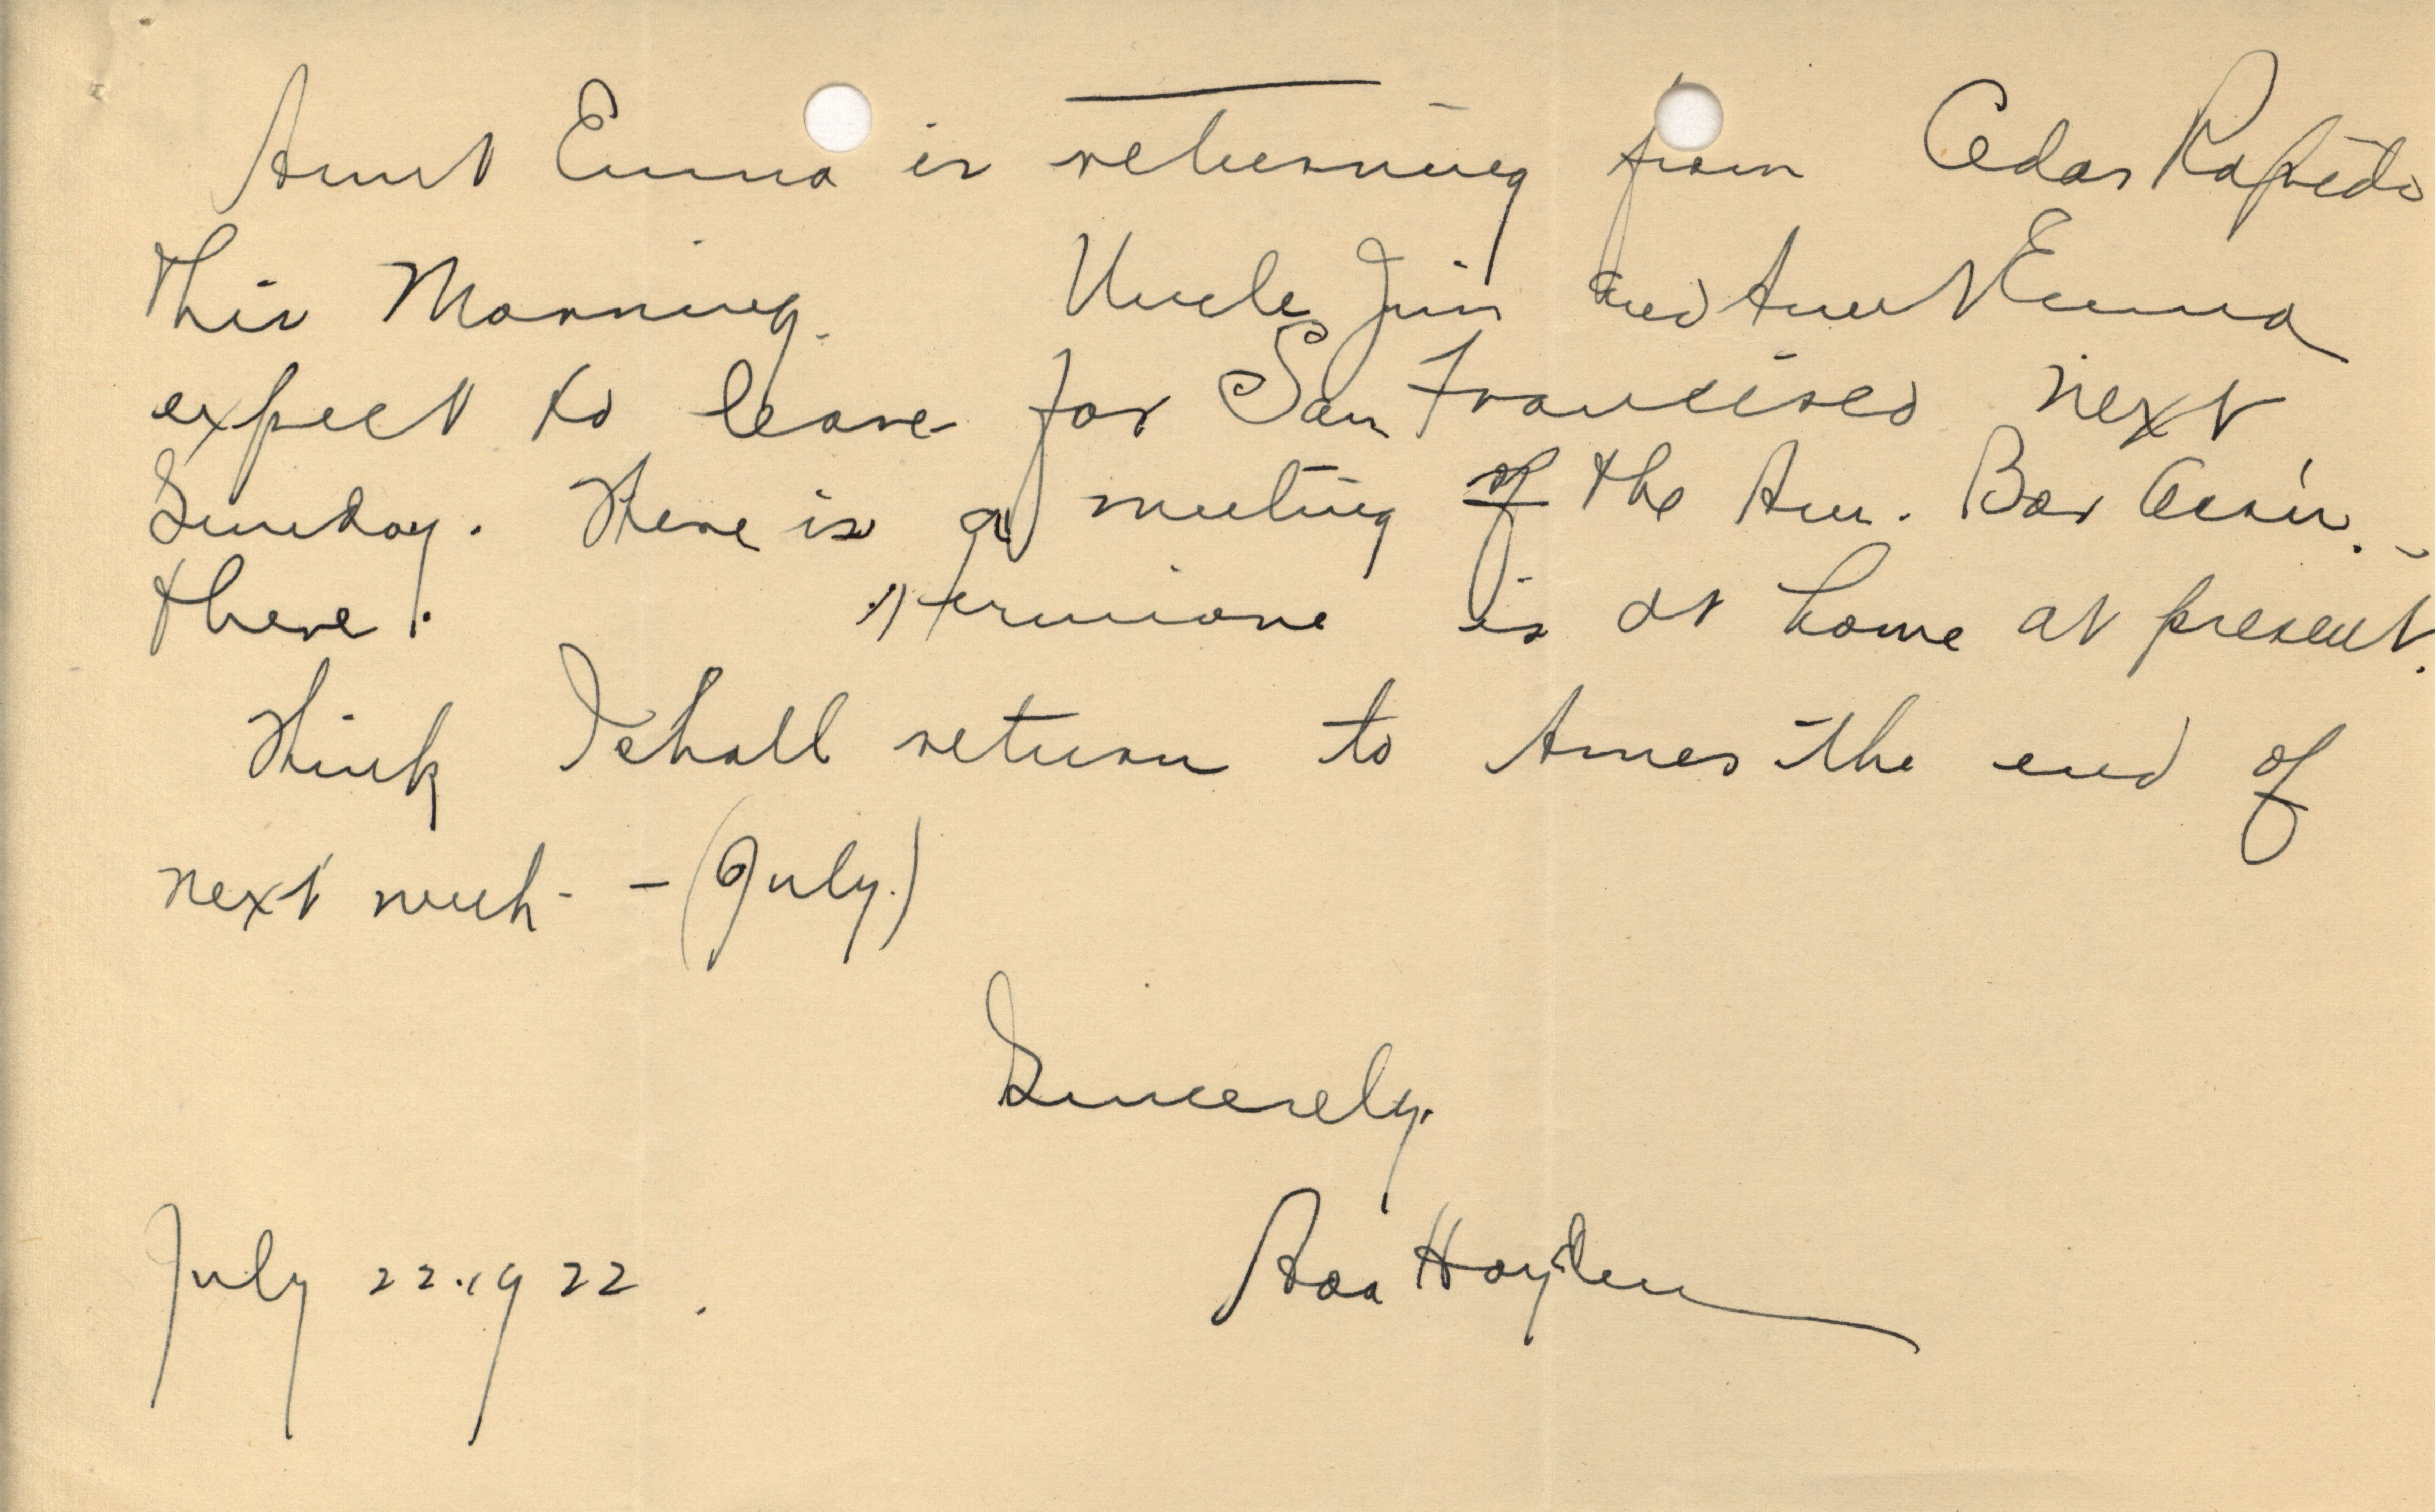 Aunt Emma is returning from Cedar Rapids
this Morning. Uncle Jim and Aunt Emma
expect to leave for San Francisco next
Sunday. There is a meeting of the Am. Bar Ass'n.
there. Hermione is at home at present.
Think I shall return to Ames the end of
next week - (July.)
Sincerely.
Ada Hayden
July 22.1922.